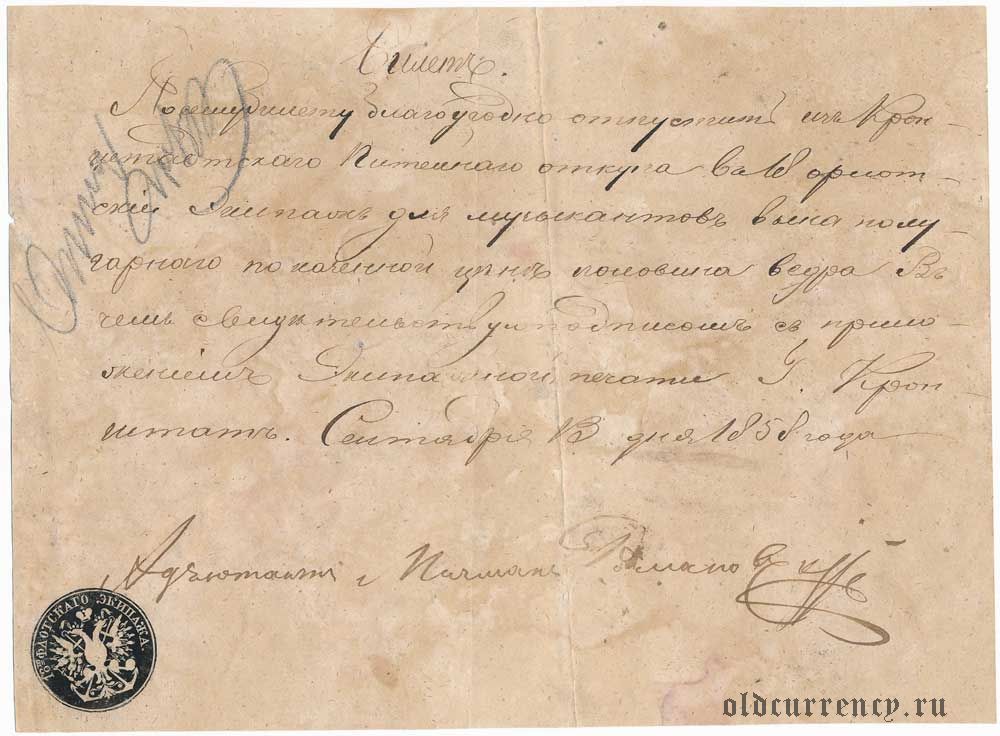 Билетъ.
По сему билету благоугодно отпустить изъ Крон-
штатскаго Питейнаго откупа въ 18 флот-
скій Экипажъ для музыкантовъ вина полу-
гарнаго по казенной ценѣ половина ведра Въ
чемъ свидѣтельствую подписомъ съ прило-
женіемъ Экипажной печати Г. Крон
штатъ. Сентября 13 дня 1858 года
Адъютантъ Мичманъ
18го ФЛОТСКАГО ЭКИПАЖА.
oldcurrency.ru